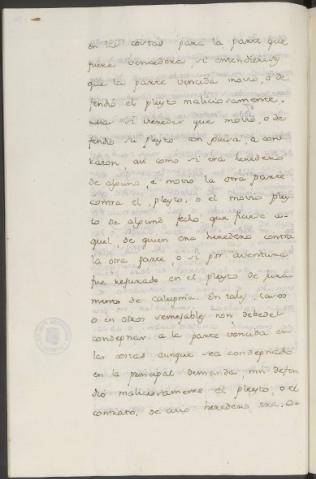 en las costas para la parte que
fuere vencedora, si entendieren
que la parte vencida movio, ó de
fendió el pleyto maliciosamente.
mas si vieredes que movio, o de
fendio su pleyto con
razon asi como si era heredero
de alguno, e movio la otra parte
contra el pleyto, o el movio pley
to de algund fecho que fizo a
quel de quien era heredero contra
la otra parte o si por aventura
fue refusado en el pleyto de jura
mento de calupnia. En tales casos
o en otros semejables non debedes
condepnar a la parte vencida en
las costas aunque sea condepnado
en la principal demanda, nin defen
dió maliciosamente el pleyto, o el
contrato, de heredero